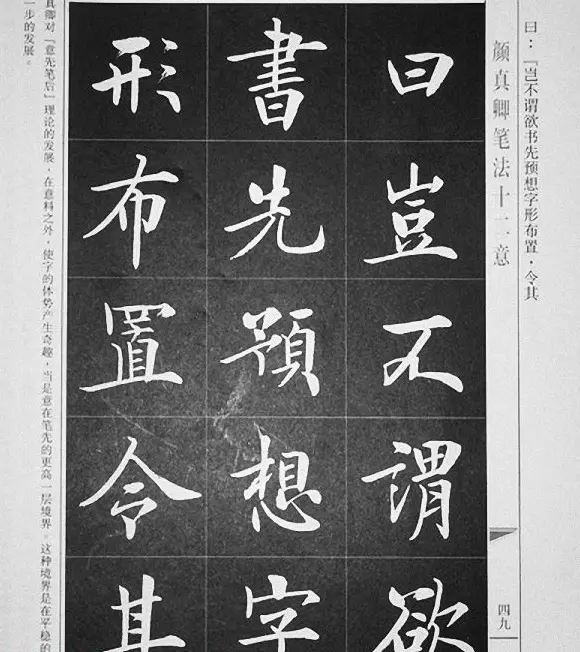 曰：『岂不谓欲书先预想字形布置，令其
颜真卿笔法十二意
四九
曰豈不謂欲
書先預想字
形布置令其
真卿对『意先笔后』理论的发展，在意料之外，使字的体势产生奇趣，当是意在笔先的更高一层境界。这种境界是在平稳的
一步的发展。